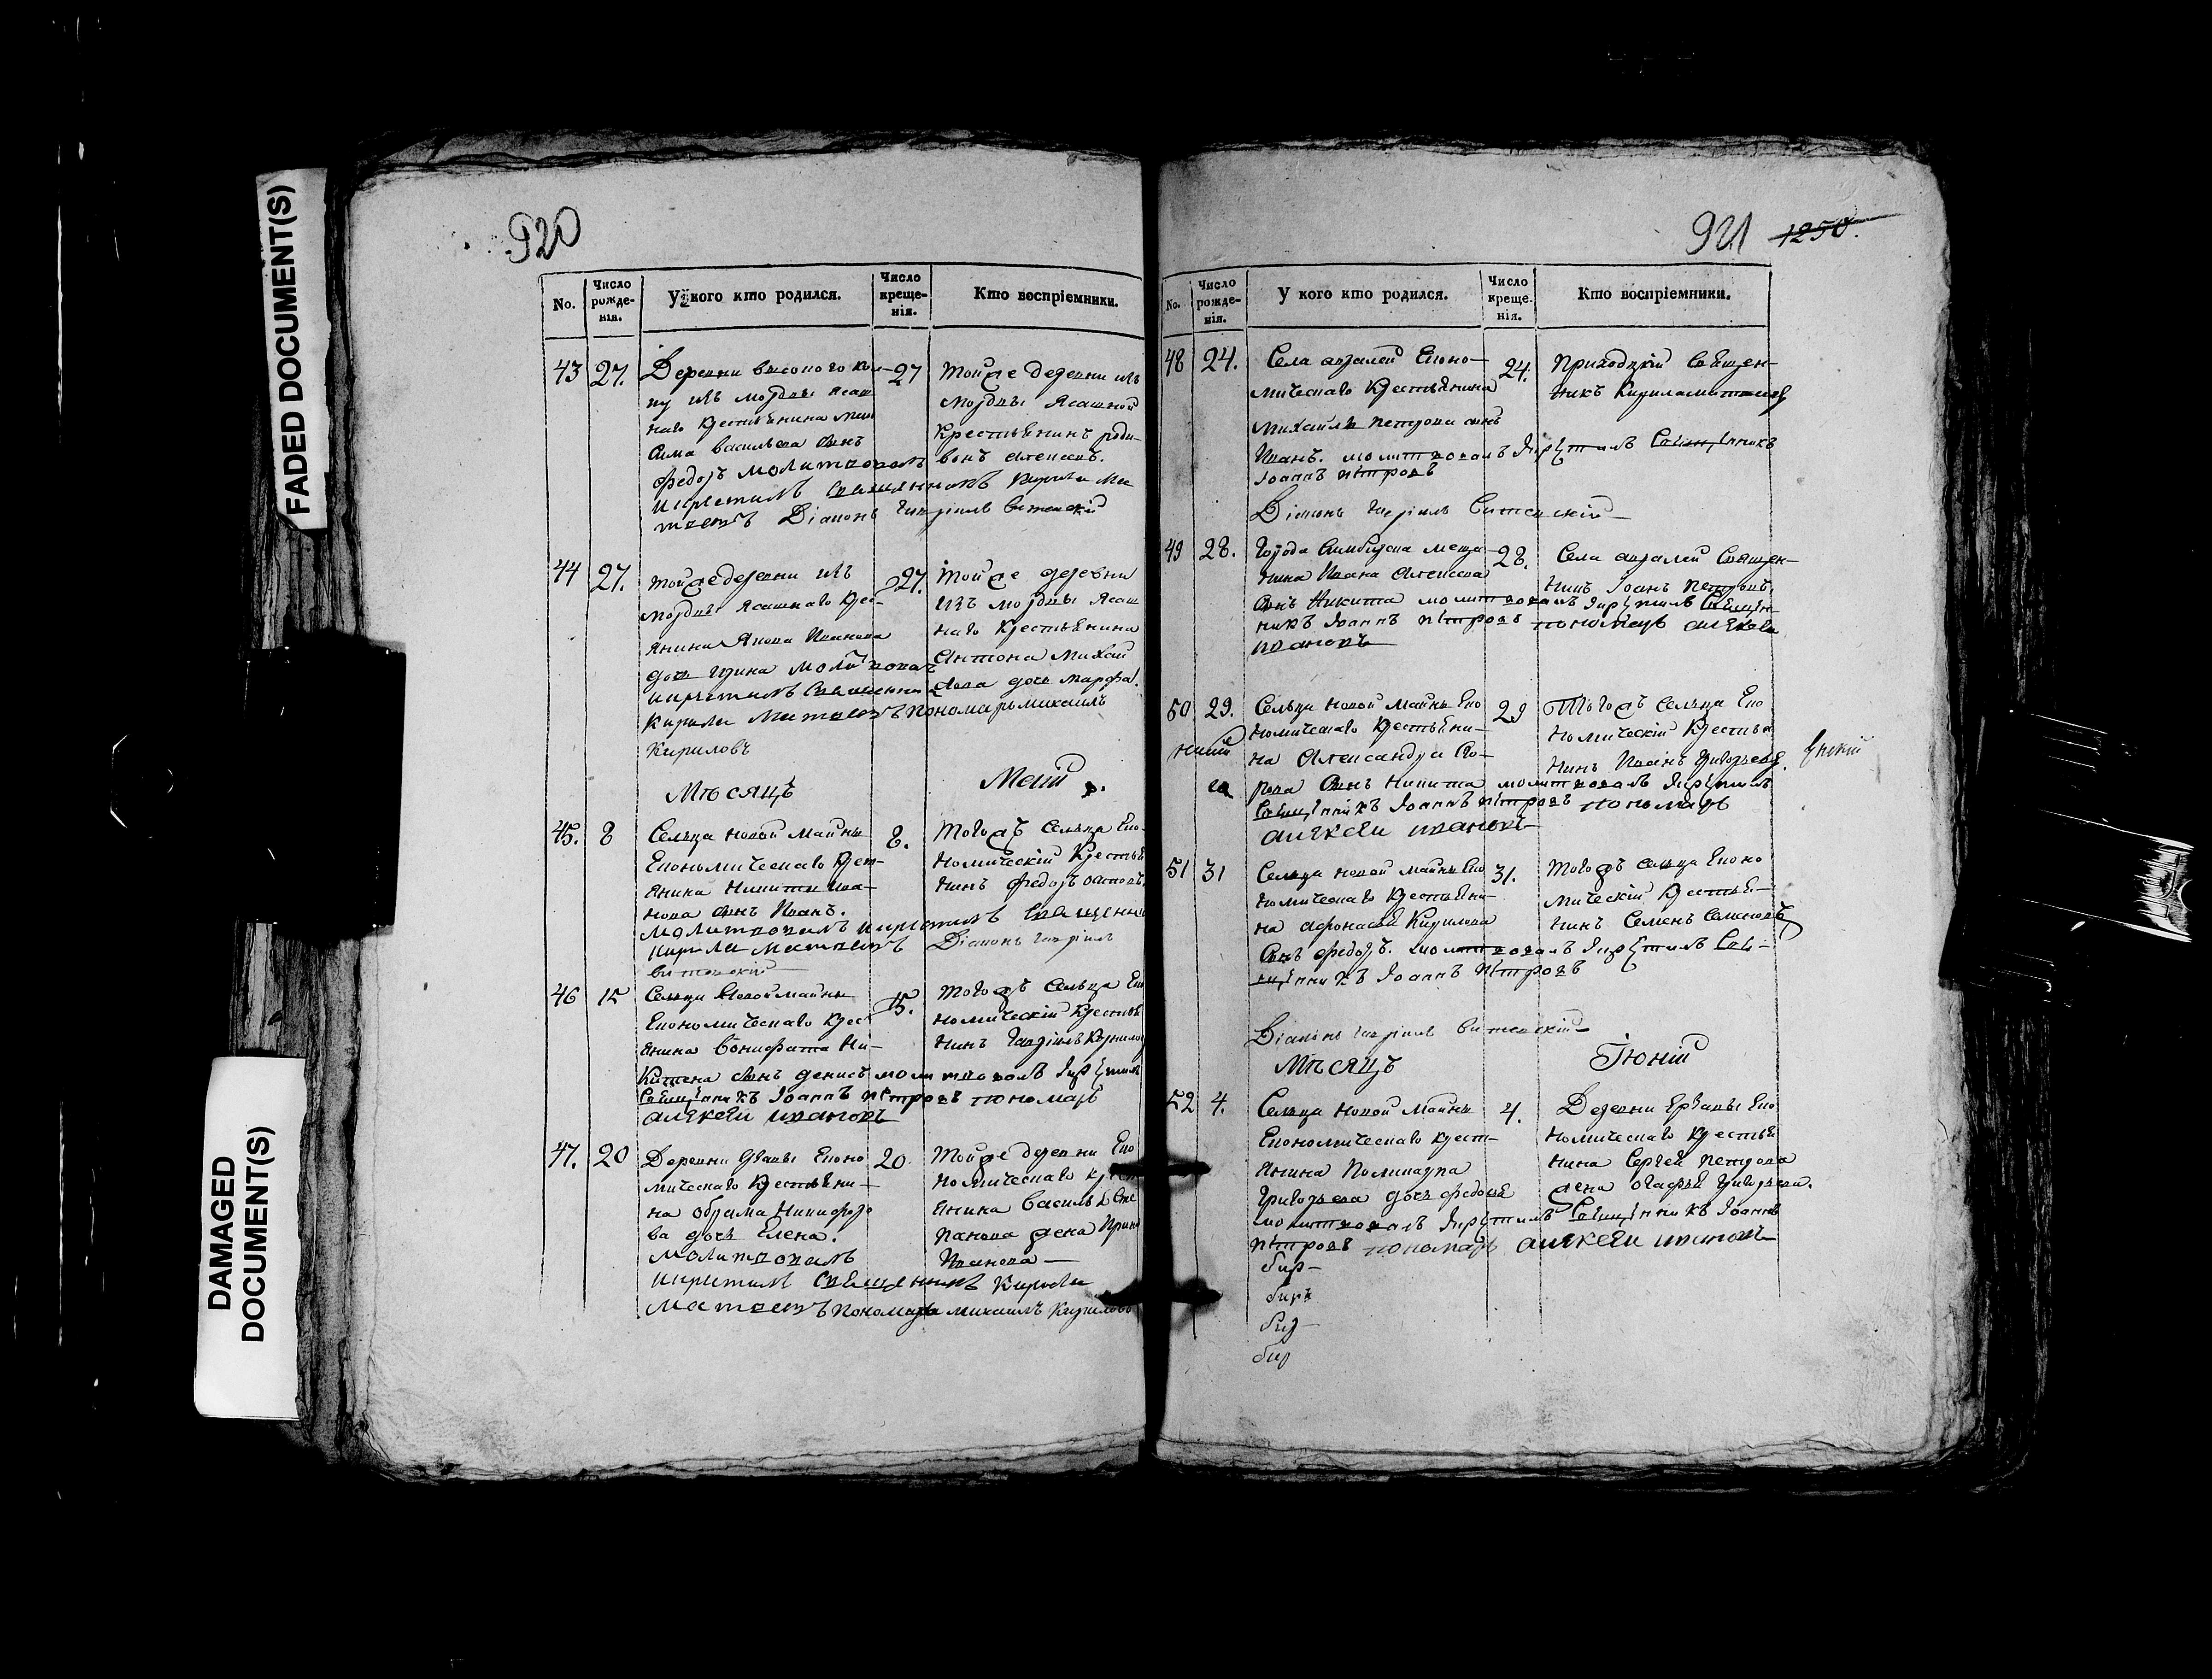 FADED DOCUMENT(S)
DAMAGED
DOCUMENT(S)
920
No.
Число
рожде-
нія.
У кого кто родился.
Число
креще-
нія.
Кто воспріемники.
43 27.
Деревни высокого Ко-
лу изъ мордвы Ясаш
наго Крестьянина
сима васильева сынъ
федоръ молитвовалъ
икрестилъ священникъ Кирила Ма
твеевъ Діаконъ Гавріилъ витевскій
27
тойже деревни изъ
мордвы Ясашной
Крестьянинъ роди-
вонъ алексеевъ.
44 27.
тойже деревни изъ
мордвы Ясашнаго Крес-
янина Якова Иванова
дочь Ирина молитвовалъ
икрестилъ священникъ
Кирила Матвеевъ пономарь михаилъ
Кириловъ
27.
тойже деревни
изъ мордвы Ясаш
наго Крестьянина
Антона Михай
лова дочь марфа.
Мѣсяцъ Маій
45. 8
Сельца новой майны
Економическаго Крест-
янина Никиты ива-
нова сынъ Иванъ.
молитвовалъ икрестилъ священни
Кирила матвеевъ Діаконъ Гавріилъ
витевскій
8.
тогожъ сельца Еко-
номическій Крестья
нинъ федоръ
46 15
Сельца Новой майны
Економическаго Крес
янина Бонифата Ни-
китена сынъ денисъ молитвовалъ икрестилъ
священникъ Іоаннъ петровъ пономарь
алексеи ивановъ
15.
тогожъ сельца Еко
номическій Крестья
нинъ Гавріилъ Кирилов
47. 20
Деревни Ерзавы Еконо
мическаго Крестьяни-
на абрама Никифоро
ва дочь Елена.
молитвовалъ
икрестилъ священникъ Кирила
Матвеевъ пономарь михаилъ Кириловъ
20.
тойже деревни Еко
номическаго крест
янина василья Сте
панова жена Ирина
Иванова
921 1250.
No.
Число
рожде-
нія.
У кого кто родился.
Число
креще-
нія.
Кто воспріемники.
48 24.
Села авралей Еконо-
мическаго Крестьянина
михайлы петрова сынъ
Иванъ. молитвовалъ икрестилъ священникъ
Іоаннъ петровъ
Діаконъ Гавріилъ Витевскій
24.
Приходскій священ-
никъ Кирила матвеевъ
49 28.
Города Симбирска меща-
нина Ивана алексеева
сынъ Никита молитвовалъ икрестилъ священ-
никъ Іоаннъ петровъ пономарь алексеи
ивановъ
28.
Села авралей священ-
никъ Іоанъ петровъ.
50 29.
Сельца новой майны Еко
номическаго Крестьяни-
на Александра
рова сынъ Никита молитвовалъ икрестилъ
священникъ Іоаннъ петровъ пономарь
алексеи ивановъ
29
тогожъ сельца Еко
номическій Крестья
нинъ Иванъ Григорьевъ.
51 31
Сельца новой майны Еко
номическаго Крестьяни-
на афонасья Кирилова
сынъ федоръ. молитвовалъ икрестилъ свя-
щенникъ Іоаннъ петровъ
Діаконъ Гавріилъ витевскій
31.
тогожъ сельца Еконо
мическій Крестья-
нинъ Семенъ Семеновъ
Мѣсяцъ Іюній
52 4.
Сельца новой майны
Економическаго крест-
янина Поликарпа
Григорьева дочь федосья
молитвовалъ икрестилъ священникъ Іоаннъ
петровъ пономарь алексеи ивановъ
4.
Деревни Ерзавы Еко
номическаго Крестья
нина Сергея петрова
жена агафья Григорьева.
бир-
бирк
бир-
бир